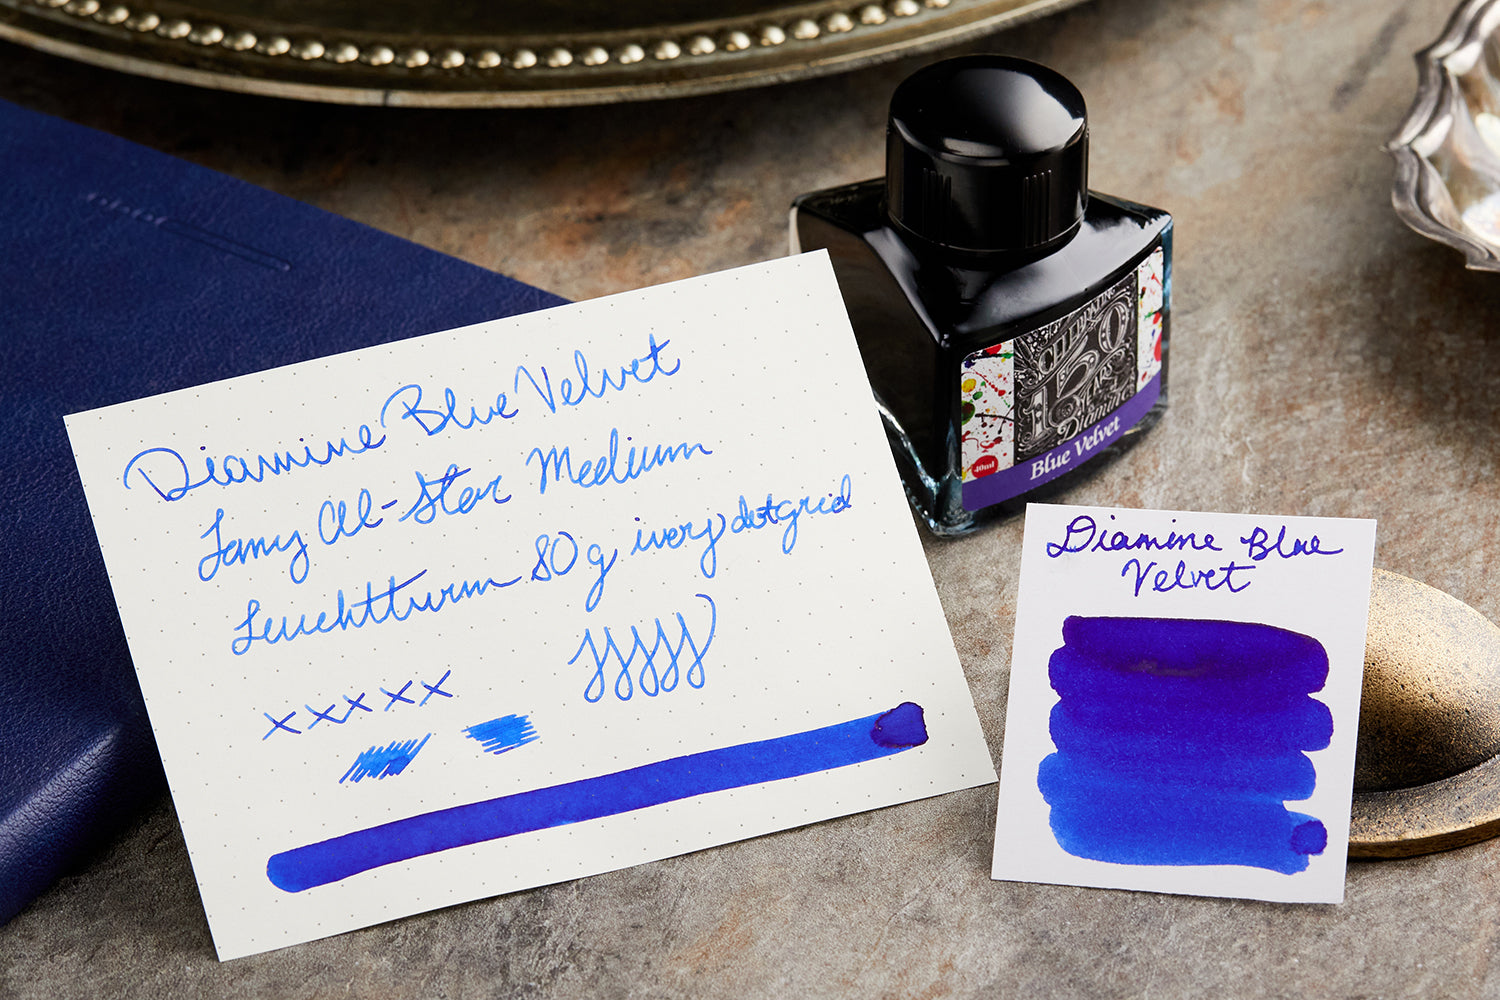 Diamine Blue Velvet
Lamy Al-Star Medium
Leuchtturm 80 g ivory dotgrid
xxxxx
CELEBRATING
150
YEARS
Diamine
Blue Velvet
40ml
Diamine Blue
Velvet